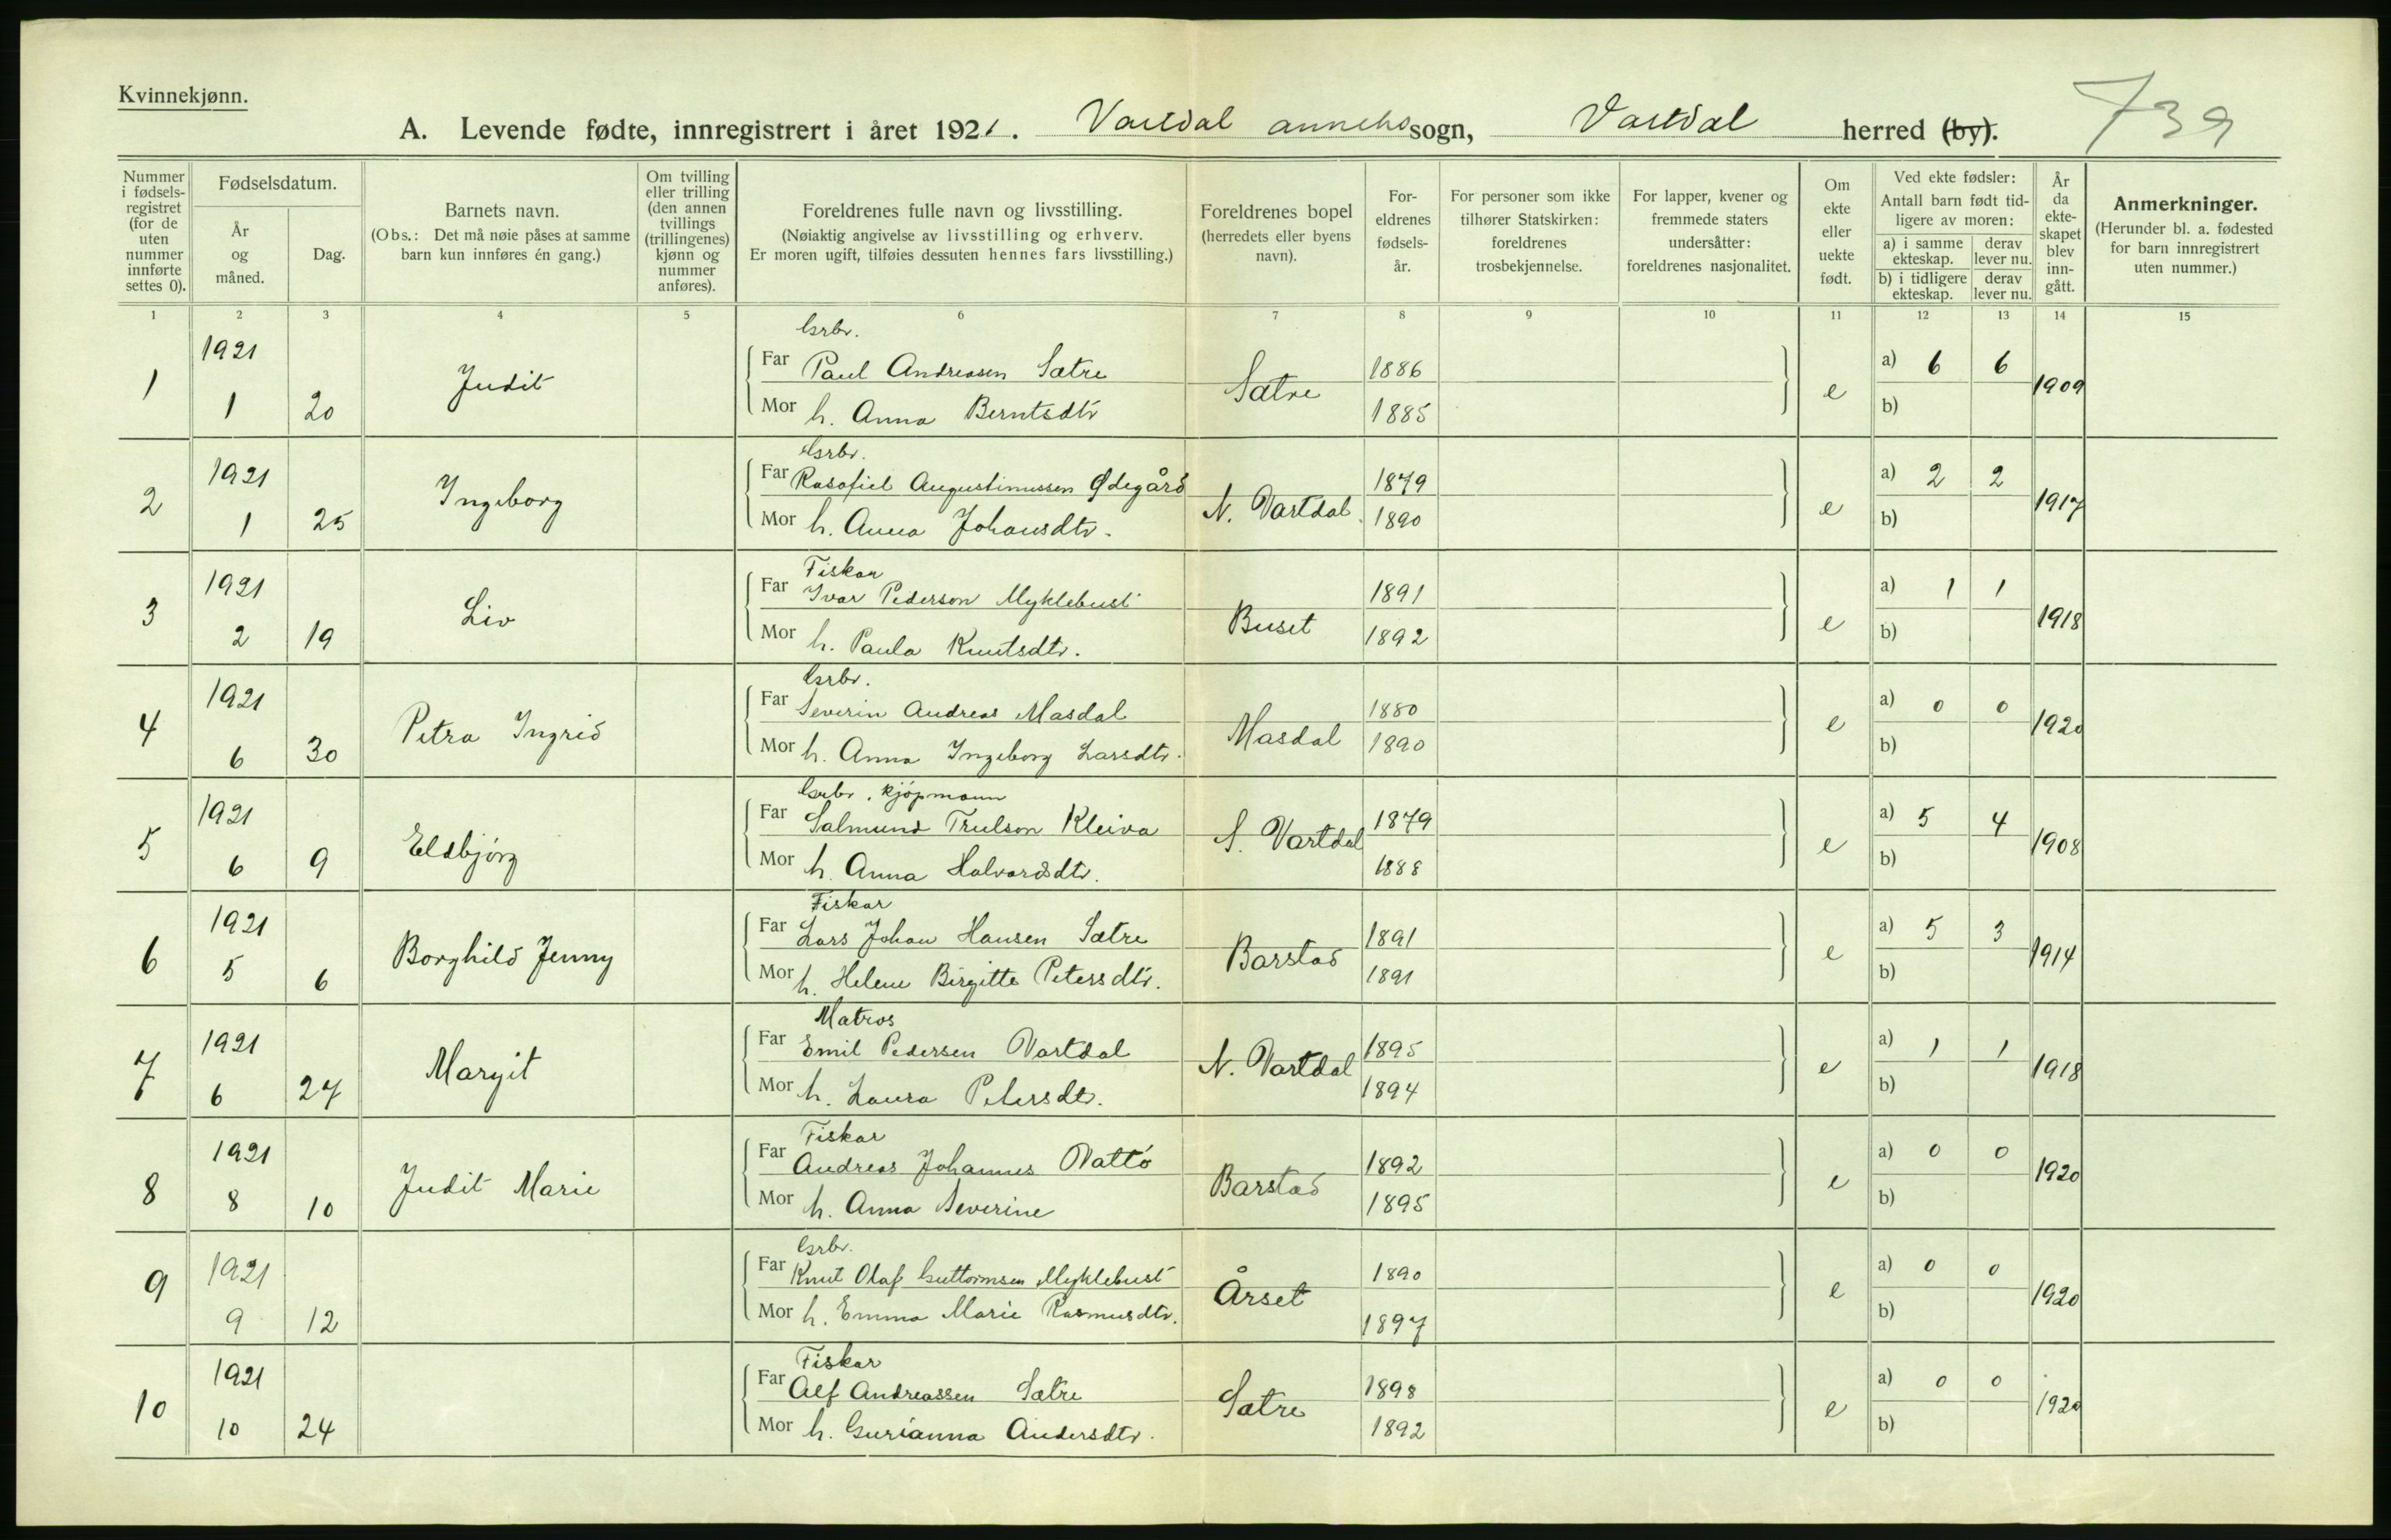 Kvinnekjønn.
A. Levende fødte, innregistrert i året 1921. Vartdal annekssogn, Vartdal herred (by). 739
Nummer i fødsels-registret (for de uten nummer innførte settes 0).
Fødselsdatum.
År og måned.
Dag.
Barnets navn.
(Obs.: Det må nøie påses at samme barn kun innføres én gang.)
Om tvilling eller trilling (den annen tvillings (trillingenes) kjønn og nummer anføres).
Foreldrenes fulle navn og livsstilling.
(Nøiaktig angivelse av livsstilling og erhverv.
Er moren ugift, tilføies dessuten hennes fars livsstilling.)
Foreldrenes bopel (herredets eller byens navn).
For-eldrenes fødsels-år.
For personer som ikke tilhører Statskirken: foreldrenes trosbekjennelse.
For lapper, kvener og fremmede staters undersåtter: foreldrenes nasjonalitet.
Om ekte eller uekte født.
Ved ekte fødsler:
Antall barn født tid-ligere av moren:
a) i samme ekteskap. derav lever nu.
b) i tidligere ekteskap. derav lever nu.
År da ekte-skapet blev inn-gått.
Anmerkninger.
(Herunder bl. a. fødested for barn innregistrert uten nummer.)
1 2 3 4 5 6 7 8 9 10 11 12 13 14 15
Grbr.
1 1921 Judit Far Paul Andreasen Sætre Sætre 1886 e a) 6 6 1909
1 20 Mor h. Anna Berntsdtr 1885 b)
Grbr.
2 1921 Ingeborg Far Rasofiel Augustinussen Ødegård N. Vartdal 1879 e a) 2 2 1917
1 25 Mor h. Anna Johansdtr. 1890 b)
Fiskar
3 1921 Liv Far Ivar Pederson Myklebust Buset 1891 e a) 1 1 1918
2 19 Mor h. Paula Knutsdtr. 1892 b)
Grbr.
4 1921 Petra Ingrid Far Severin Andreas Masdal Masdal 1880 e a) 0 0 1920
6 30 Mor h. Anna Ingeborg Larsdtr. 1890 b)
Grbr. kjøpmann
5 1921 Eldbjørg Far Salmund Trulson Kleiva S. Vartdal 1879 e a) 5 4 1908
6 9 Mor h. Anna Halvardsdtr. 1888 b)
Fiskar
6 1921 Borghild Jenny Far Lars Johan Hansen Sætre Barstad 1891 e a) 5 3 1914
5 6 Mor h. Helene Birgitte Petersdtr. 1891 b)
Matros
7 1921 Margit Far Emil Pedersen Vartdal N. Vartdal 1895 e a) 1 1 1918
6 27 Mor h. Laura Petersdtr. 1894 b)
Fiskar
8 1921 Judit Marie Far Andreas Johannes Vattø Barstad 1892 e a) 0 0 1920
8 10 Mor h. Anna Severine 1895 b)
Grbr.
9 1921 Far Knut Olaf Guttormsen Myklebust Årset 1890 e a) 0 0 1920
9 12 Mor h. Emma Marie Rasmusdtr. 1897 b)
Fiskar
10 1921 Far Alf Andreassen Sætre Sætre 1898 e a) 0 0 1920
10 24 Mor h. Gurianna Andersdtr. 1892 b)